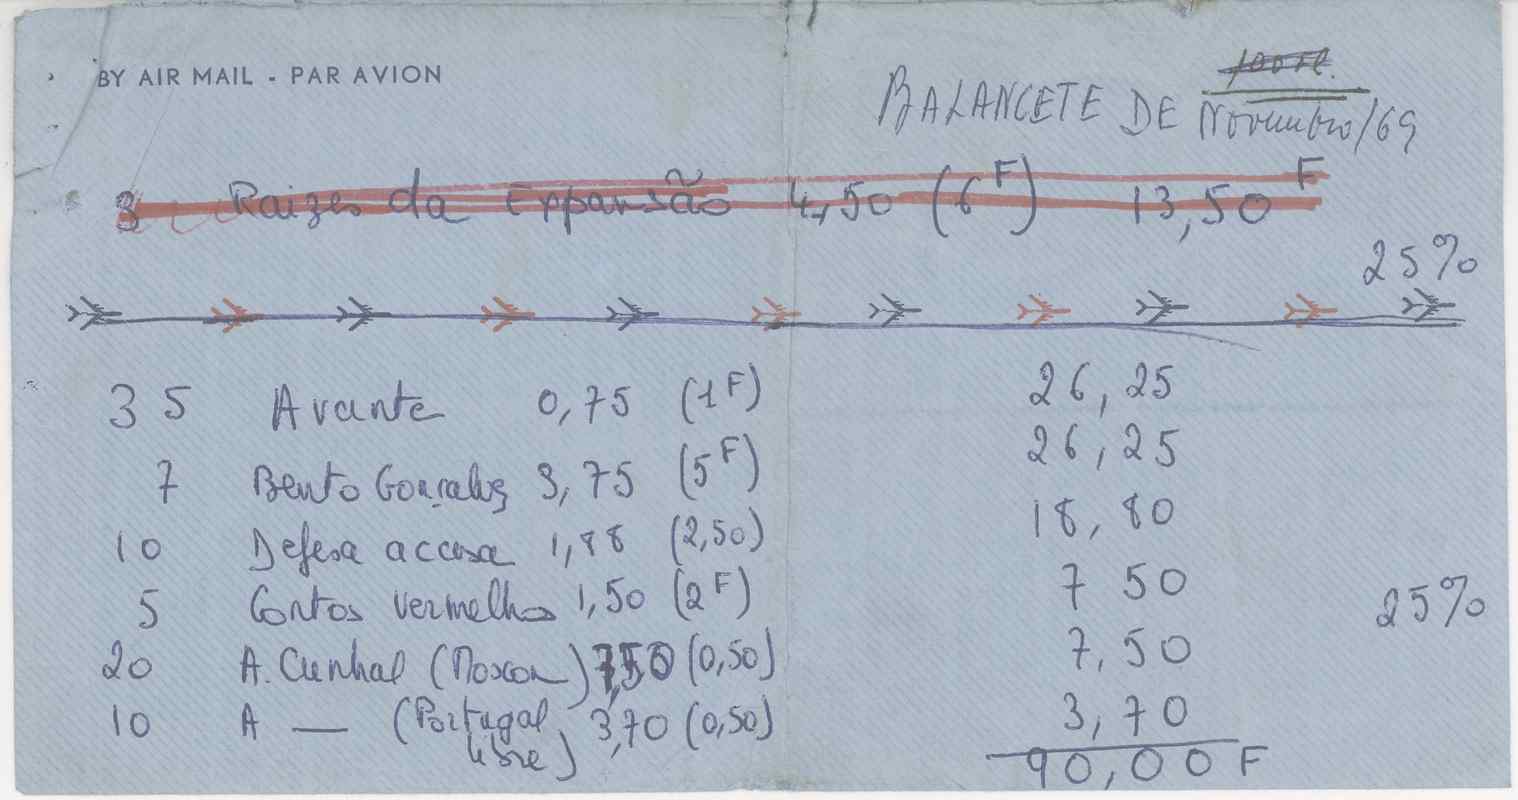 BY AIR MAIL - PAR AVION
BALANCETE DE Novembro/69
3 Raizes da Expansão 4,50 (6F) 13,50F
25%
35 Avante 0,75 (1F) 26,25
7 Bento Gonçalves 3,75 (5F) 26,25
10 Defesa accusa 1,88 (2,50) 18,80
5 Contos vermelhos 1,50 (2F) 7 50
25%
20 A. Cunhal (Moscou) 7,50 (0,50) 7,50
10 A — (Portugal 3,70 (0,50) 3,70
libre)
90,00F